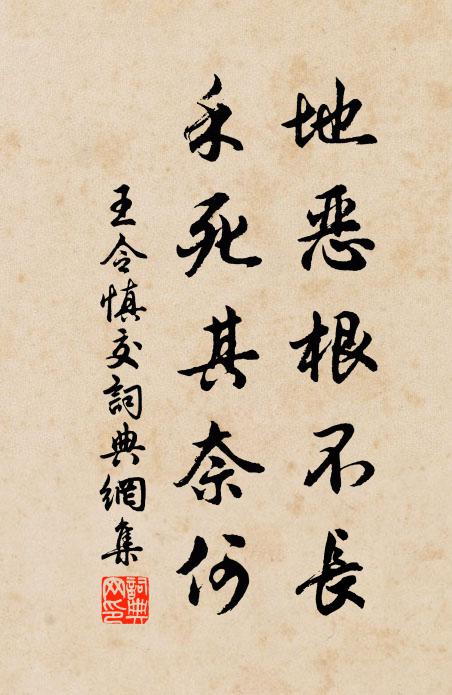 地恶根不长
禾死其奈何
王令慎交詞典網集
詞典
网印